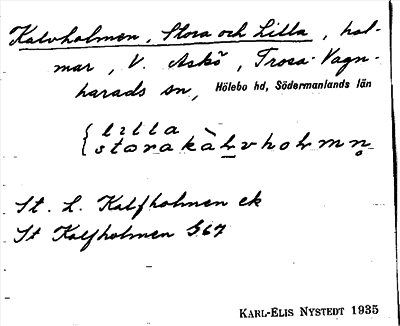 Kalvholmen, Stora och Lilla, hol-
mar, V. Askö, Trosa-Vagn-
harads sn, Hölebo hd, Södermanlands län
{ lilla
{ stora kàlvholmn̥
St. L. Kalfholmen ek
St Kalfholmen G67
KARL-ELIS NYSTEDT 1935